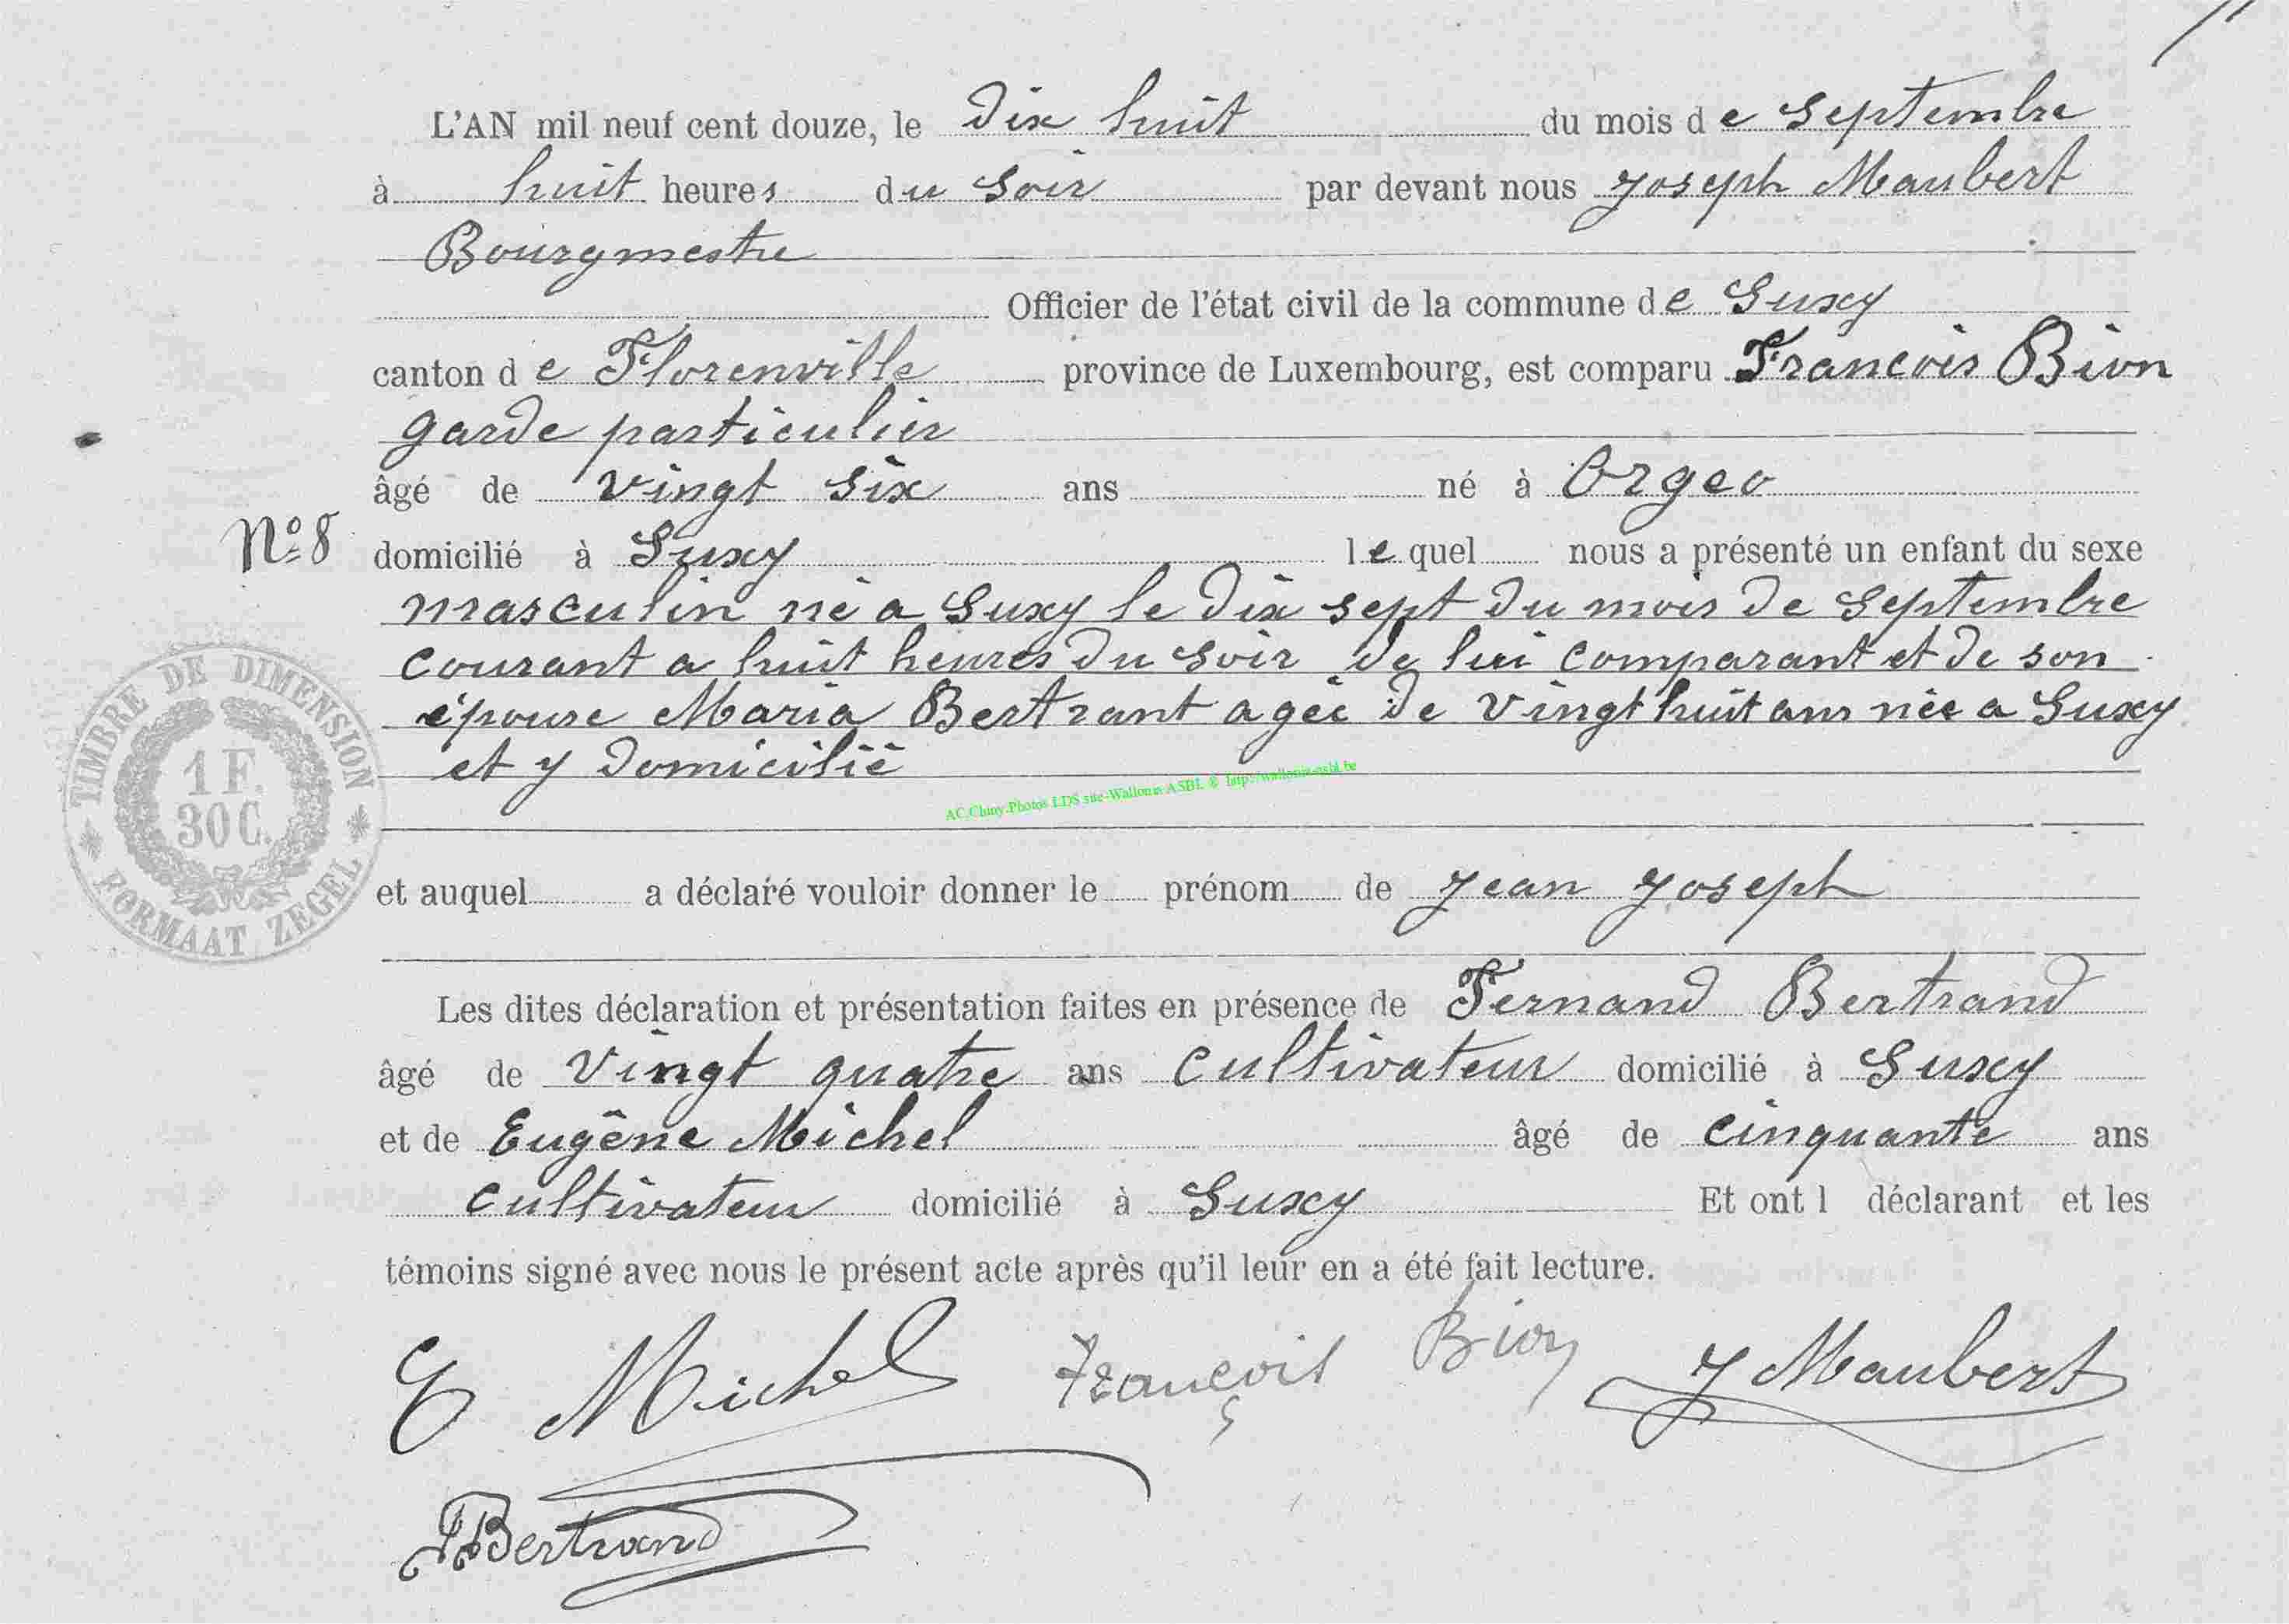 L'AN mil neuf cent douze, le Dix huit du mois de Septembre
à huit heures du Soir par devant nous Joseph Maubert
Bourgmestre
Officier de l'état civil de la commune de Suxy
canton de Florenville province de Luxembourg, est comparu Francois Bion
garde particulier
âgé de vingt six ans né à Orgeo
No 8
domicilié à Suxy lequel nous a présenté un enfant du sexe
masculin né a Suxy le dix sept du mois de Septembre
courant a huit heures du soir de lui comparant et de son
épouse Maria Bertrant agée de vingt huit ans née a Suxy
et y domicilié
TIMBRE DE DIMENSION
1 F.
30 C.
FORMAAT ZEGEL
AC.Chiny.Photos LDS site-Wallonia ASBL © http://wallonia-asbl.be
et auquel a déclaré vouloir donner le prénom de Jean Joseph
Les dites déclaration et présentation faites en présence de Fernand Bertrand
âgé de vingt quatre ans cultivateur domicilié à Suxy
et de Eugêne Michel âgé de cinquante ans
cultivateur domicilié à Suxy Et ont l déclarant et les
témoins signé avec nous le présent acte après qu'il leur en a été fait lecture.
E Michel François Bion J Maubert
FBertrand